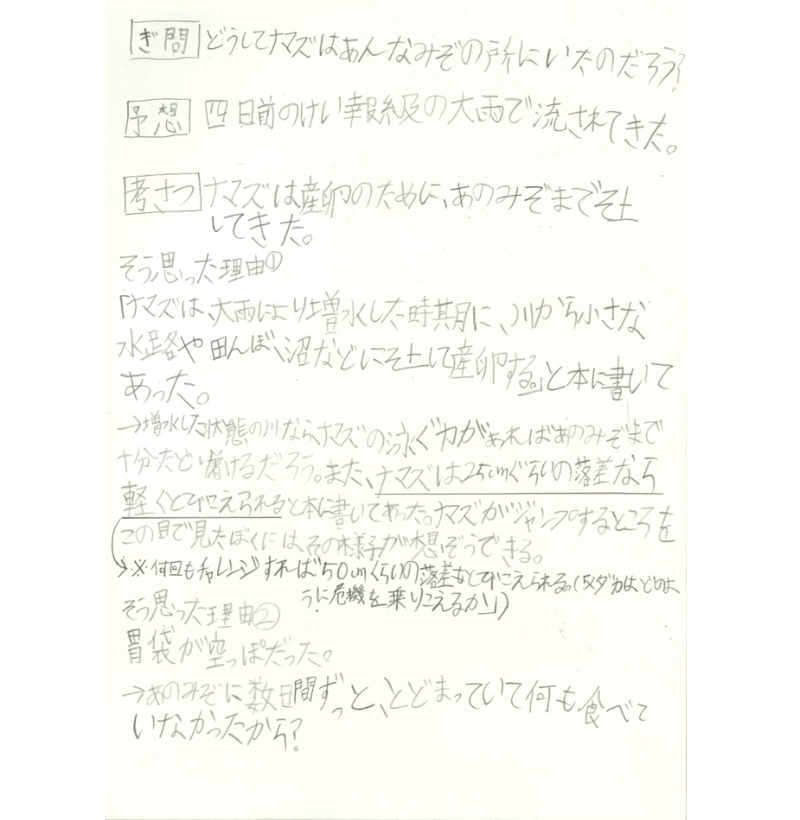 ぎ問 どうしてナマズはあんなみぞの所にいたのだろう?
予想 四日前のけい報級の大雨で流されてきた。
考さつ ナマズは産卵のために、あのみぞまでそ上
してきた。
そう思った理由①
「ナマズは、大雨により増水した時期に、川から小さな
水路や田んぼ、沼などにそ上して産卵する。」と本に書いて
あった。
→増水した状態の川ならナマズの泳ぐ力があればあのみぞまで
十分たどり着けるだろう。また、ナマズは25cmぐらいの落差なら
軽くとびこえられると本に書いてあった。ナマズがジャンプするところを
この目で見たぼくには、その様子が想ぞうできる。
→※何回もチャレンジすれば50cmくらいの落差もとびこえられる。(「メダカはどのよ
うに危機を乗りこえるか」)
そう思った理由②
胃袋が空っぽだった。
→あのみぞに数日間ずっと、とどまっていて何も食べて
いなかったから?